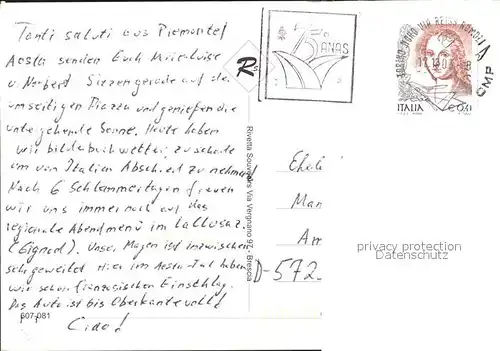 Tanti saluti aus Piemonte/
Aosta senden Euch Miiceluise
u Norbert. Sitzen gerade auf der
umseitigen Piazza und genießen die
untergehende Sonne. Heute haben
wir bilderbuchwetter, zu schade
um von Italien Abschied zu nehmen!
Nach 6 Schlemmertagen freuen
wir uns immer noch auf das
regionale Abendmenü im
(Gignod). Unser Magen ist inzwischen
sehr geweitet. Hier im Aosta-Tal haben
wir schon französischen Einschlag.
Das Auto ist bis Oberkante voll!
Ciao!
607-081
R
Rivetta Souvenirs Via Vergnano 97 - Brescia
ANAS
TORINO VIA REISS ROMOLI
CMP
ITALIA
0,41
Eheli
Man
Am
D-572
privacy protection
Datenschutz